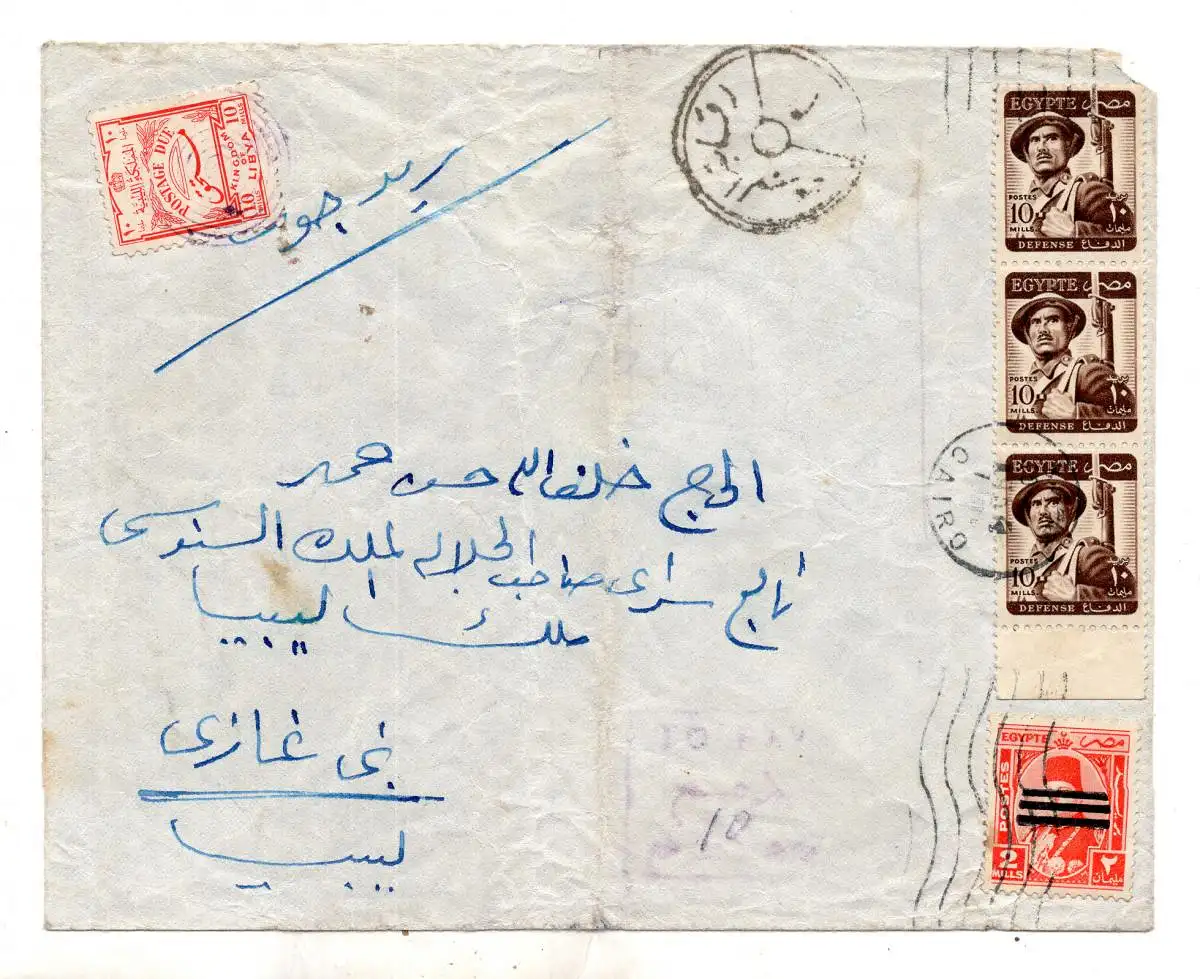 POSTAGE DUE
KINGDOM
OF
LIBYA
10
MILLS
10
MILLS
المملكة الليبية
١٠
١٠
بريد جوى
رقابة
EGYPTE مصر
POSTES بريد
10 ١٠
MILLS. مليمات
DEFENSE الدفاع
EGYPTE مصر
POSTES بريد
10 ١٠
MILLS. مليمات
DEFENSE الدفاع
CAIRO
EGYPTE مصر
POSTES بريد
10 ١٠
MILLS. مليمات
DEFENSE الدفاع
الحاج خلف الله حسن محمد
تابع سراى صاحب الجلاله الملك السنوسى
ملك ليبيا
بنى غازى
ليبيا
EGYPTE مصر
POSTES
2 ٢
MILLS مليمان